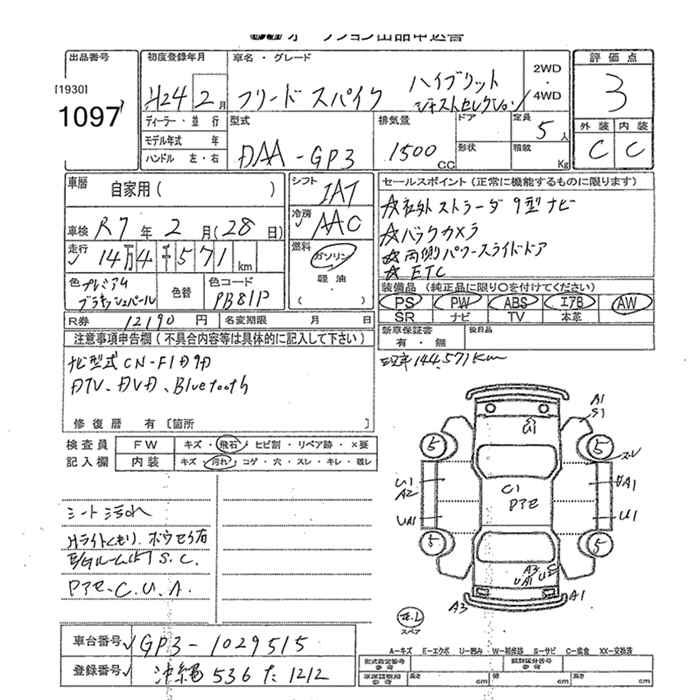 オークション出品申込書
出品番号
[1930]
1097
初度登録年月
H24 2月
車名・グレード
フリードスパイク ハイブリット
ジャストセレクション
2WD
4WD
評価点
3
外装 内装
C C
ディーラー・並行
モデル年式 年
ハンドル 左・右
型式
DAA-GP3
排気量
1500 CC
ドア
形状
定員
5人
積載
Kg
車歴
自家用( )
車検 R7年 2月(28日)
走行
14万4千571km
色 プレミアム
ブラキッシュパール
色替
色コード
PB81P
シフト
IAT
冷房
AAC
燃料
ガソリン
軽油
( )
セールスポイント(正常に機能するものに限ります)
☆社外ストラーダ9型ナビ
☆バックカメラ
☆両側パワースライドドア
☆ETC
装備品(純正品に限り○を付けてください)
PS PW ABS エアB AW
SR ナビ TV 本革
R券 12190円 名変期限 月 日
新車保証書
有・無
後日品
注意事項申告欄(不具合内容等は具体的に記入して下さい)
ナビ型式CN-F1D9D
DTV、DVD、Bluetooth
修復歴 有 [箇所
現車144,571km
検査員
記入欄
FW キズ・飛石・ヒビ割・リペア跡・×要
内装 キズ・汚れ・コゲ・穴・スレ・キレ・破レ
シート汚れ
Hライトくもり.ボウセイ有
E/GルームS.C.
Pアセ.C.U.A.
A1
S1
U1
5 5
スレ
U1
A2
C1
Pアセ
UA1
U1
5 5
A3
UA1
A3 A1
スペア
車台番号 GP3-1029515
登録番号 沖縄 536 た 1212
A-キズ E-エクボ U-凹み W-補修跡 S-サビ C-腐食 XX-交換済